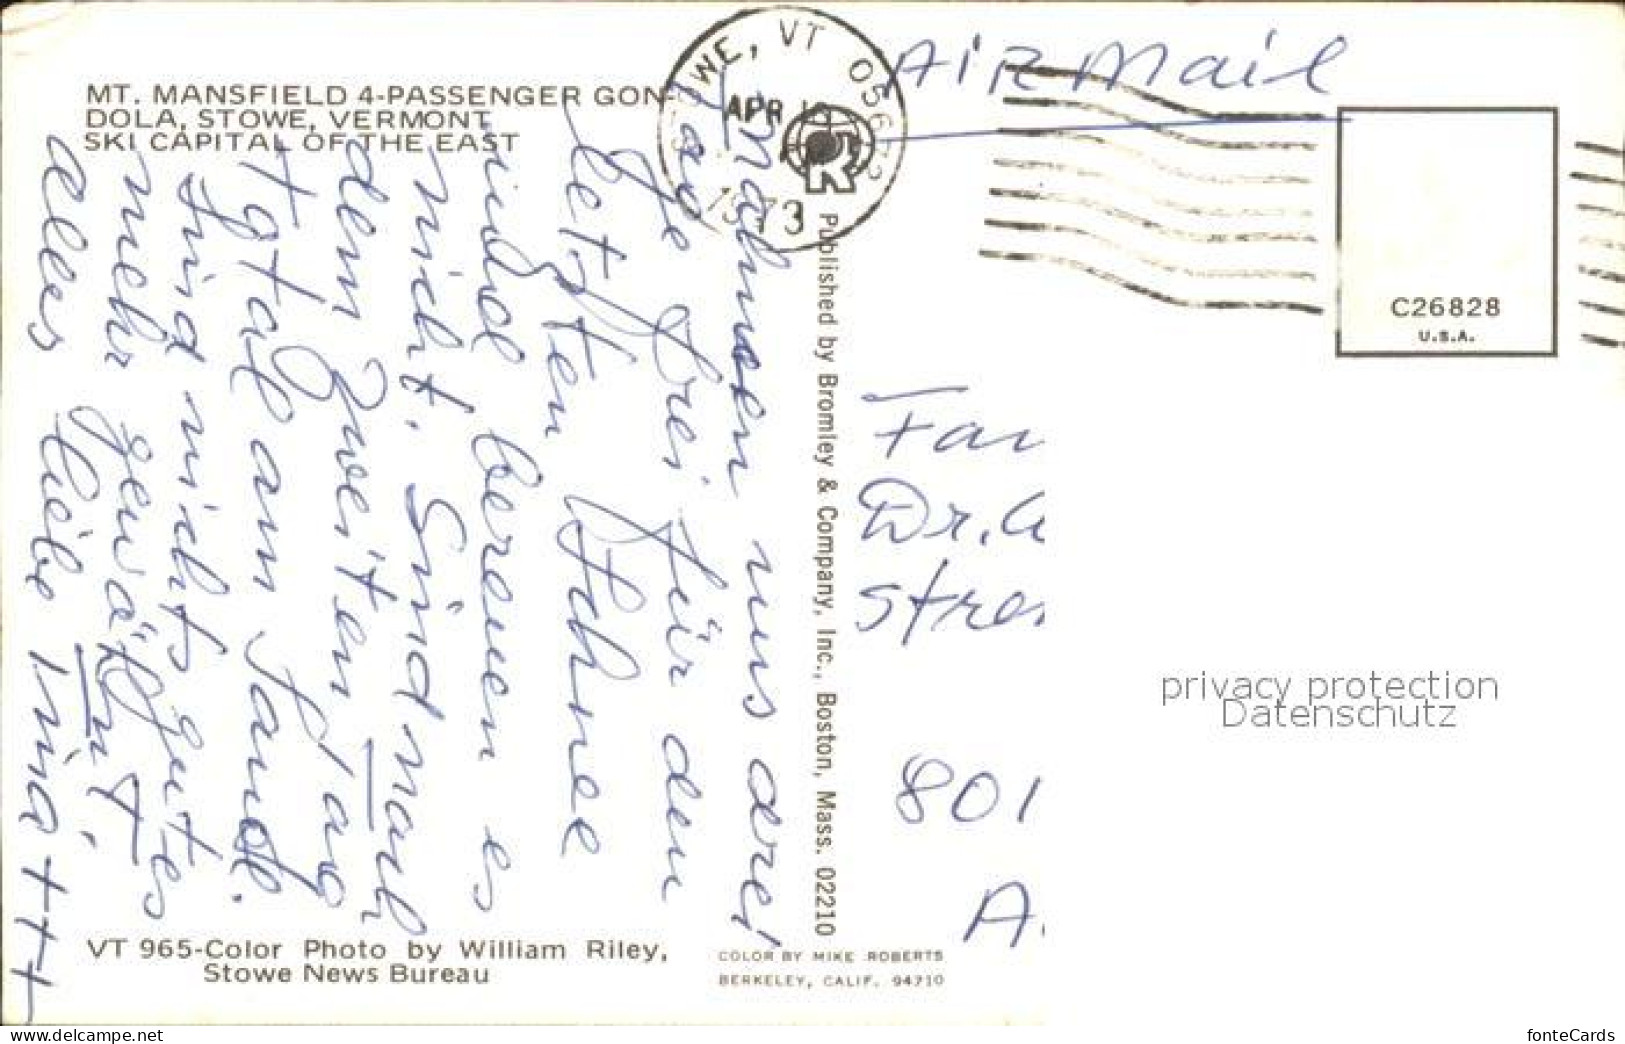 MT. MANSFIELD 4-PASSENGER GON-
DOLA, STOWE, VERMONT
SKI CAPITAL OF THE EAST
WE, VT 05672
APR
1973
Air Mail
C26828
U.S.A.
nahmen uns drei
Tage frei für den
letzten Schnee
und bereuen es
nicht. Sind nach
dem zweiten Tag
total am Sande.
Sind nichts gutes
mehr gewöhnt
alles liebe Inia +++
Published by Bromley & Company, Inc., Boston, Mass. 02210
Fam
Dr.
801
A
privacy protection
Datenschutz
VT 965-Color Photo by William Riley,
Stowe News Bureau
COLOR BY MIKE ROBERTS
BERKELEY, CALIF. 94710
fonteCards
www.delcampe.net